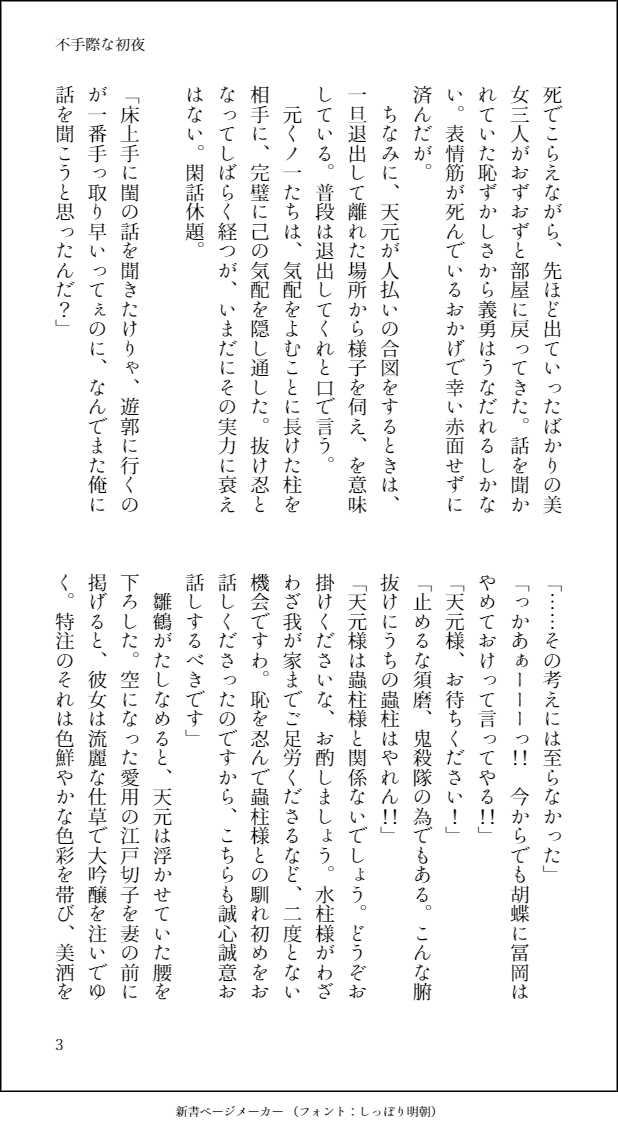 不手際な初夜
死でこらえながら、先ほど出ていったばかりの美
女三人がおずおずと部屋に戻ってきた。話を聞か
れていた恥ずかしさから義勇はうなだれるしかな
い。表情筋が死んでいるおかげで幸い赤面せずに
済んだが。
　ちなみに、天元が人払いの合図をするときは、
一旦退出して離れた場所から様子を伺え、を意味
している。普段は退出してくれと口で言う。
　元くノ一たちは、気配をよむことに長けた柱を
相手に、完璧に己の気配を隠し通した。抜け忍と
なってしばらく経つが、いまだにその実力に衰え
はない。閑話休題。
「床上手に閨の話を聞きたけりゃ、遊郭に行くの
が一番手っ取り早いってぇのに、なんでまた俺に
話を聞こうと思ったんだ？」
「……その考えには至らなかった」
「っかあぁーーーっ!!　今からでも胡蝶に冨岡は
やめておけって言ってやる!!」
「天元様、お待ちください！」
「止めるな須磨、鬼殺隊の為でもある。こんな腑
抜けにうちの蟲柱はやれん!!」
「天元様は蟲柱様と関係ないでしょう。どうぞお
掛けくださいな、お酌しましょう。水柱様がわざ
わざ我が家までご足労くださるなど、二度とない
機会ですわ。恥を忍んで蟲柱様との馴れ初めをお
話しくださったのですから、こちらも誠心誠意お
話しするべきです」
　雛鶴がたしなめると、天元は浮かせていた腰を
下ろした。空になった愛用の江戸切子を妻の前に
掲げると、彼女は流麗な仕草で大吟醸を注いでゆ
く。特注のそれは色鮮やかな色彩を帯び、美酒を
3
新書ページメーカー（フォント：しっぽり明朝）